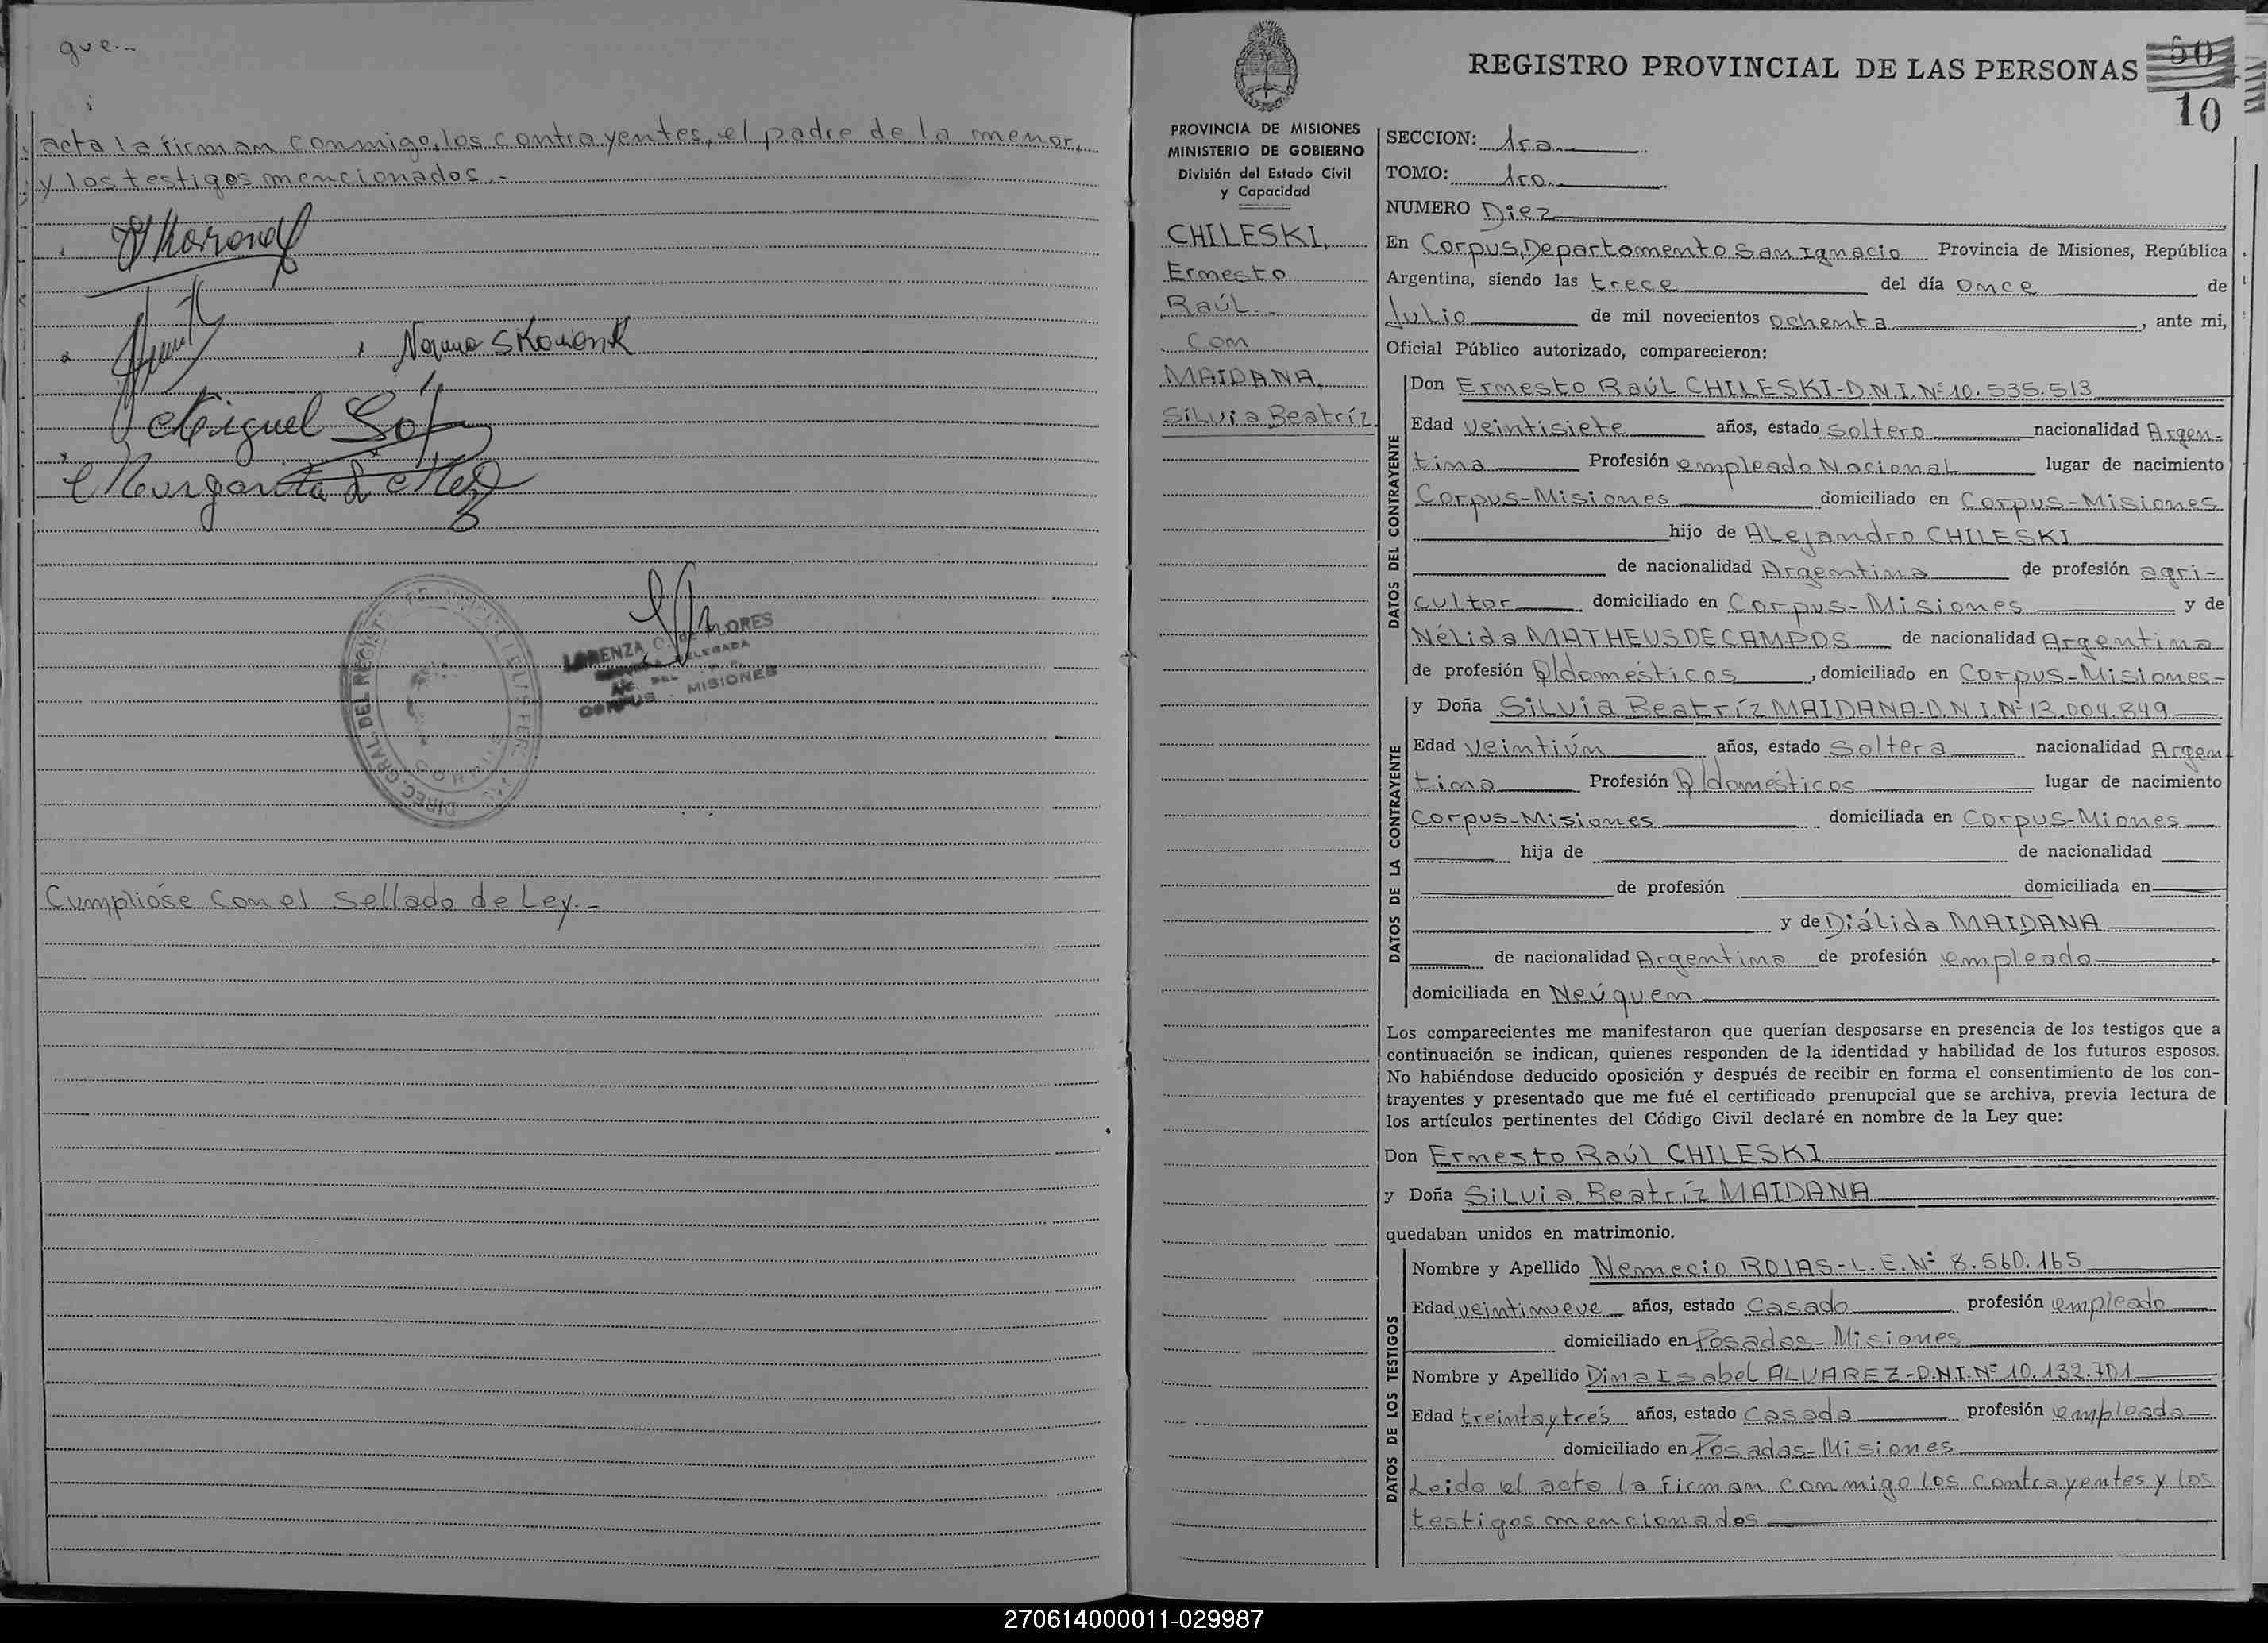 que.-
acta la firman conmigo, los contrayentes, el padre de la menor,
y los testigos mencionados.-
Norma Skomonk
Miguel
Margarita
LORENZA C. de FLORES
DELEGADA
CORPUS - MISIONES
DIREC. GRAL. DEL REGIST
Cumplióse con el sellado de Ley.-
REGISTRO PROVINCIAL DE LAS PERSONAS
50
10
PROVINCIA DE MISIONES
MINISTERIO DE GOBIERNO
División del Estado Civil
y Capacidad
CHILESKI,
Ernesto
Raúl.
Con
MAIDANA,
Silvia Beatríz
SECCION: 1ra.
TOMO: 1ro.
NUMERO Diez
En Corpus, Departamento San Ignacio Provincia de Misiones, República
Argentina, siendo las trece del día once de
Julio de mil novecientos ochenta, ante mi,
Oficial Público autorizado, comparecieron:
DATOS DEL CONTRAYENTE
Don Ernesto Raúl CHILESKI-D.N.I.Nº10.535.513
Edad veintisiete años, estado soltero nacionalidad Argen-
tina Profesión empleado Nacional lugar de nacimiento
Corpus-Misiones domiciliado en Corpus-Misiones
hijo de Alejandro CHILESKI
de nacionalidad Argentina de profesión agri-
cultor domiciliado en Corpus-Misiones y de
Nélida MATHEUS DE CAMPOS de nacionalidad Argentina
de profesión Q/domésticos, domiciliado en Corpus-Misiones-
DATOS DE LA CONTRAYENTE
y Doña Silvia Beatríz MAIDANA-D.N.I.Nº13.004.849
Edad veintiún años, estado soltera nacionalidad Argen
tina Profesión Q/domésticos lugar de nacimiento
Corpus-Misiones domiciliada en Corpus-Miones
hija de de nacionalidad
de profesión domiciliada en
y de Diálida MAIDANA
de nacionalidad Argentina de profesión empleada
domiciliada en Neúquen
Los comparecientes me manifestaron que querían desposarse en presencia de los testigos que a
continuación se indican, quienes responden de la identidad y habilidad de los futuros esposos.
No habiéndose deducido oposición y después de recibir en forma el consentimiento de los con-
trayentes y presentado que me fué el certificado prenupcial que se archiva, previa lectura de
los artículos pertinentes del Código Civil declaré en nombre de la Ley que:
Don Ernesto Raúl CHILESKI
y Doña Silvia Beatríz MAIDANA
quedaban unidos en matrimonio.
DATOS DE LOS TESTIGOS
Nombre y Apellido Nemecio ROJAS-L.E.Nº 8.560.165
Edad veintinueve años, estado Casado profesión empleado
domiciliado en Posadas-Misiones
Nombre y Apellido Dina Isabel ALVAREZ-D.N.I.Nº10.132.701
Edad treinta y tres años, estado Casada profesión empleada
domiciliado en Posadas-Misiones
Leida el acta la firman conmigo los contrayentes y los
testigos mencionados
270614000011-029987